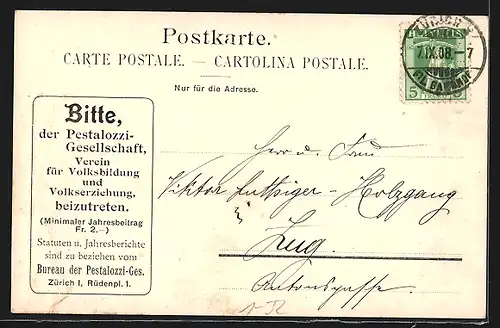 Postkarte.
CARTE POSTALE. — CARTOLINA POSTALE.
Nur für die Adresse.
7.IX.08.–7
5
Bitte,
der Pestalozzi-
Gesellschaft,
Verein
für Volksbildung
und
Volkserziehung,
beizutreten.
(Minimaler Jahresbeitrag
Fr. 2.–)
Statuten u. Jahresberichte
sind zu beziehen vom
Bureau der Pestalozzi-Ges.
Zürich I, Rüdenpl. 1.
Herr u. Frau
Viktor Luthiger - Holzgang
Zug.